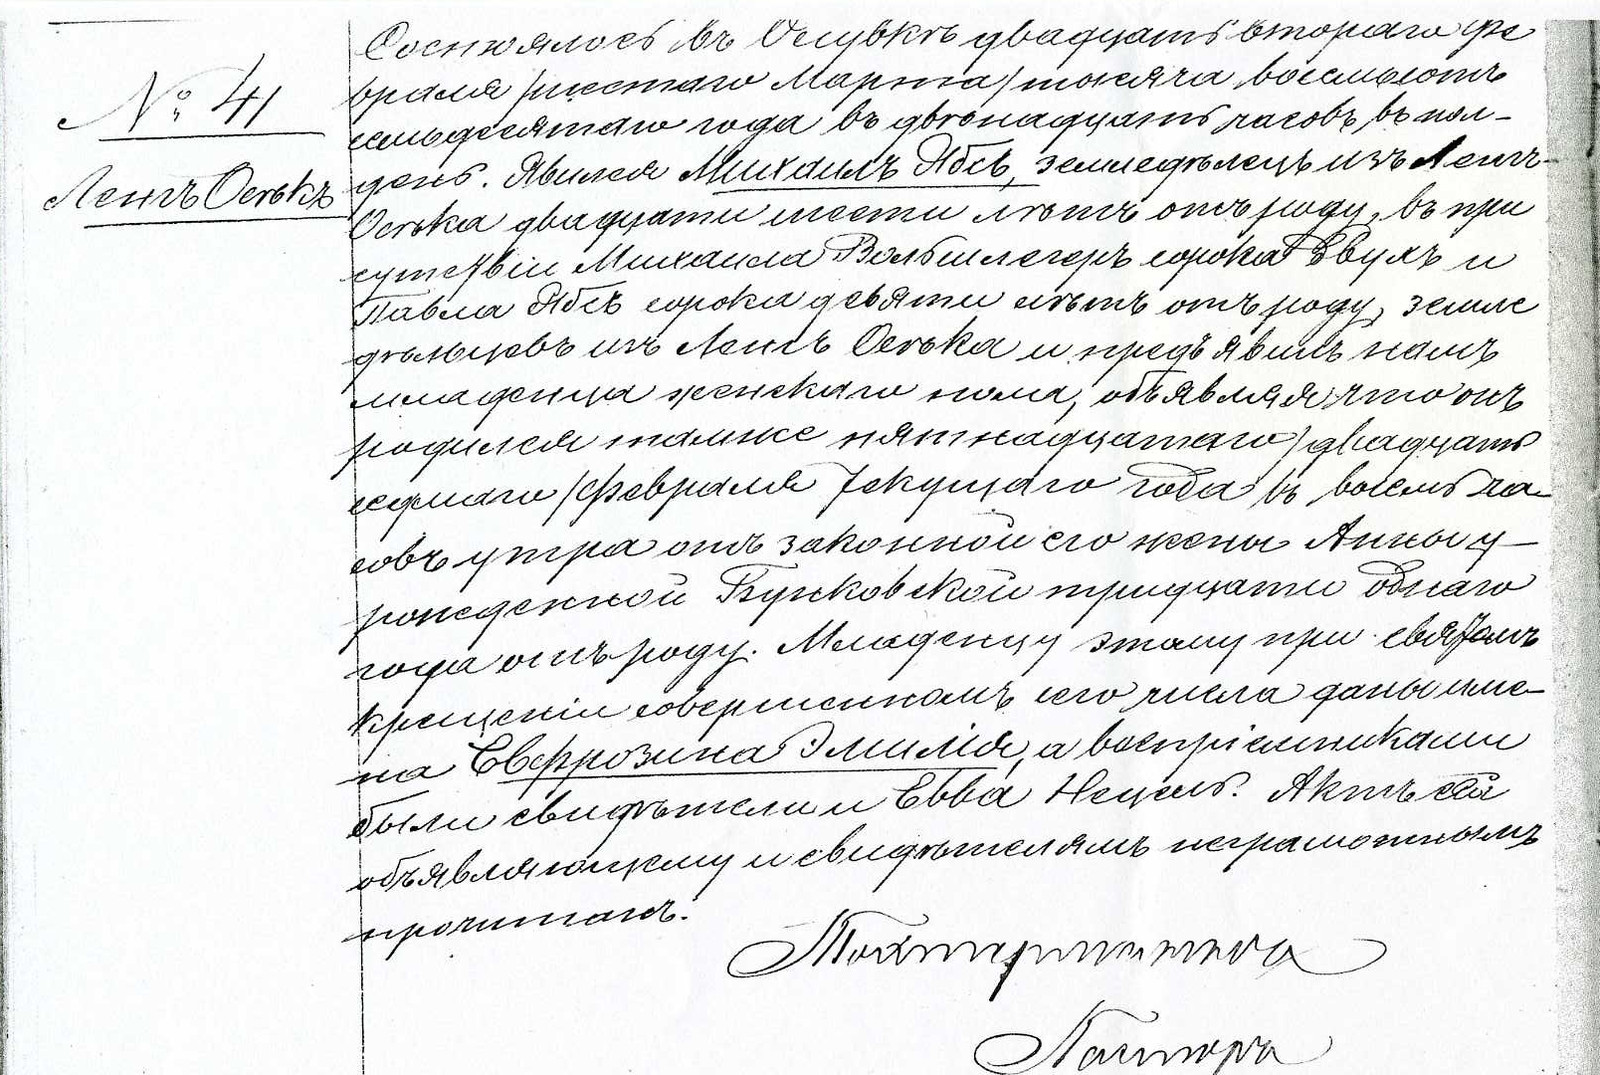 № 41
Ленгъ Осѣкъ
Состоялось въ Осувкѣ двадцать втораго фе
враля /шестаго Марта/ тысяча восемьсотъ
семьдесятаго года въ двѣнадцать часовъ въ пол-
день. Явился Михаилъ Ябсъ, земледѣлецъ изъ Ленгъ-
Осѣка двадцати шести лѣтъ отъ роду, въ при
сутствіи Михаила Вольшлегеръ сорока двухъ и
Павла Ябсъ сорока девяти лѣтъ отъ роду, земле
дѣльцевъ изъ Ленгъ Осѣка и предъявилъ намъ
младенца женскаго пола, объявляя что онъ
родился тамже пятнадцатаго /двадцать
седмаго/ февраля текущаго года въ восемь ча-
совъ утра отъ законной его жены Анны у-
рожденной Бужковской тридцати одного
года отъ роду. Младенцу этому при святомъ
крещеніи совершенномъ сего числа даны име-
на Евфрозина Эмилія, а воспріемниками
были свидѣтели и Евва Нецель. Актъ сей
объявляющему и свидѣтелямъ неграмотнымъ
прочитанъ.
Пастора